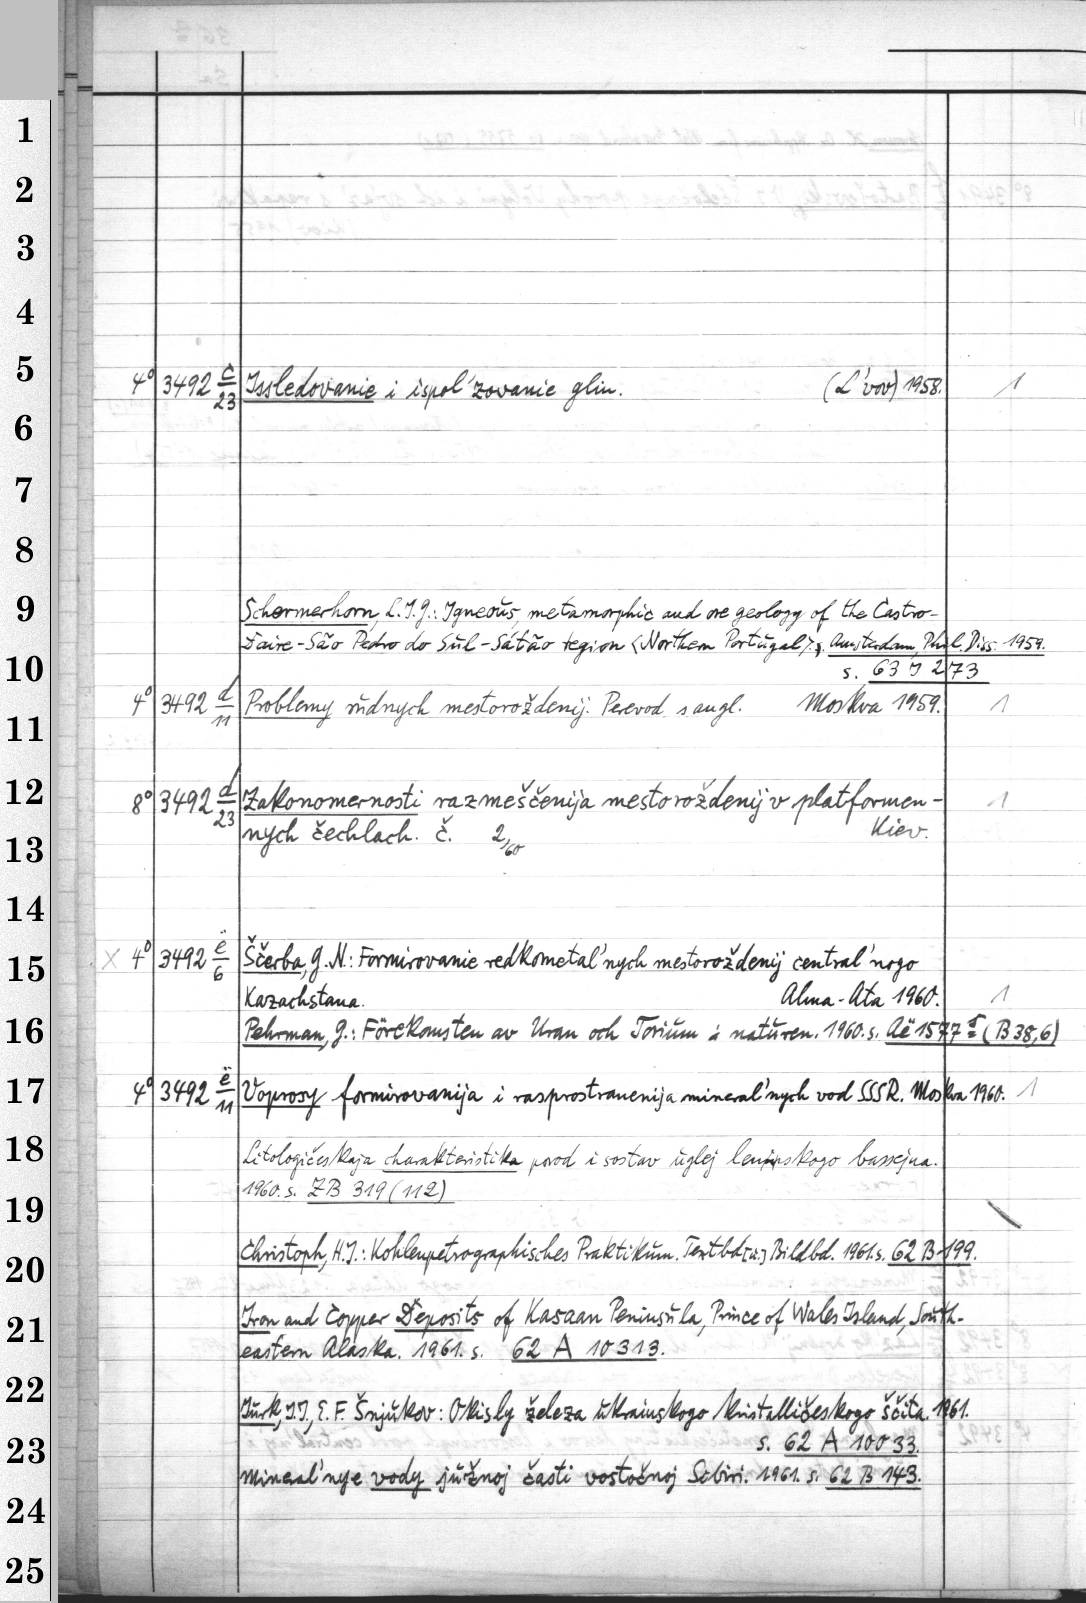 1
2
3
4
5
4° 3492 c/23 Issledovanie i ispol'zovanie glin. (L'vov) 1958. 1
6
7
8
9
Schermerhorn, L.J.G.: Igneous, metamorphic and ore geology of the Castro-
Daire-São Pedro do Sul-Sátão region (Northern Portugal). Amsterdam, Phil. Diss. 1959.
10
s. 63 J 273
4° 3492 d/11 Problemy rudnych mestoroždenij. Perevod s angl. Moskva 1959. 1
11
12
8° 3492 d/23 Zakonomernosti razmeščenija mestoroždenij v platformen- 1
nych čechlach. č. 2/60 Kiev.
13
14
15
x 4° 3492 ë/6 Ščerba, G.N.: Formirovanie redkometal'nych mestoroždenij central'nogo
Kazachstana. Alma-Ata 1960. 1
16
Pehrman, G.: Förekomsten av Uran och Torium i naturen. 1960. s. Aë 1577 (B 38,6)
17
4° 3492 ë/11 Voprosy formirovanija i rasprostranenija mineral'nych vod SSSR. Moskva 1960. 1
18
Litologičeskaja charakteristika porod i sostav uglej leninskogo bassejna.
1960. s. ZB 319 (112)
19
20
Christoph, H.J.: Kohlenpetrographisches Praktikum. Textbd [u.] Bildbd. 1961. s. 62 B 199.
21
Iron and Copper Deposits of Kasaan Peninsula, Prince of Wales Island, South-
eastern Alaska. 1961. s. 62 A 10313.
22
Jurk, J.J., E.F. Šnjukov: Okisly železa ukrainskogo kristalličeskogo ščita. 1961.
23
s. 62 A 10033.
Mineral'nye vody južnoj časti vostočnoj Sibiri. 1961. s. 62 B 143.
24
25